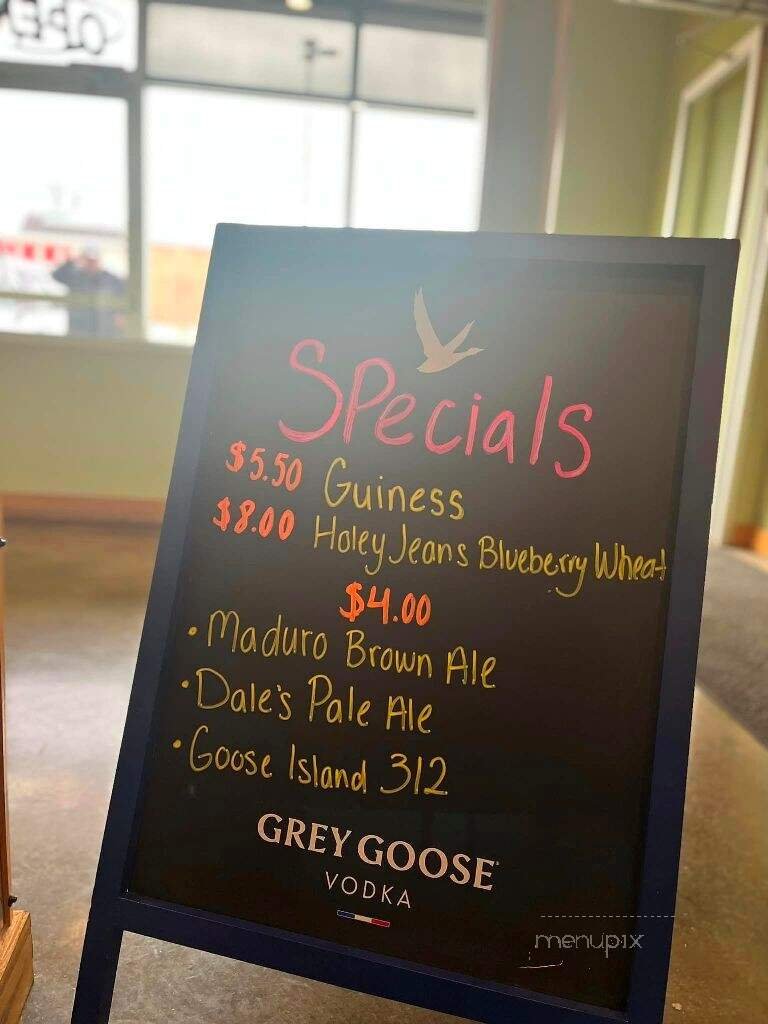 OPEN
Specials
$5.50 Guiness
$8.00 Holey Jeans Blueberry Wheat
$4.00
• Maduro Brown Ale
• Dale's Pale Ale
• Goose Island 312
GREY GOOSE
VODKA
menupix